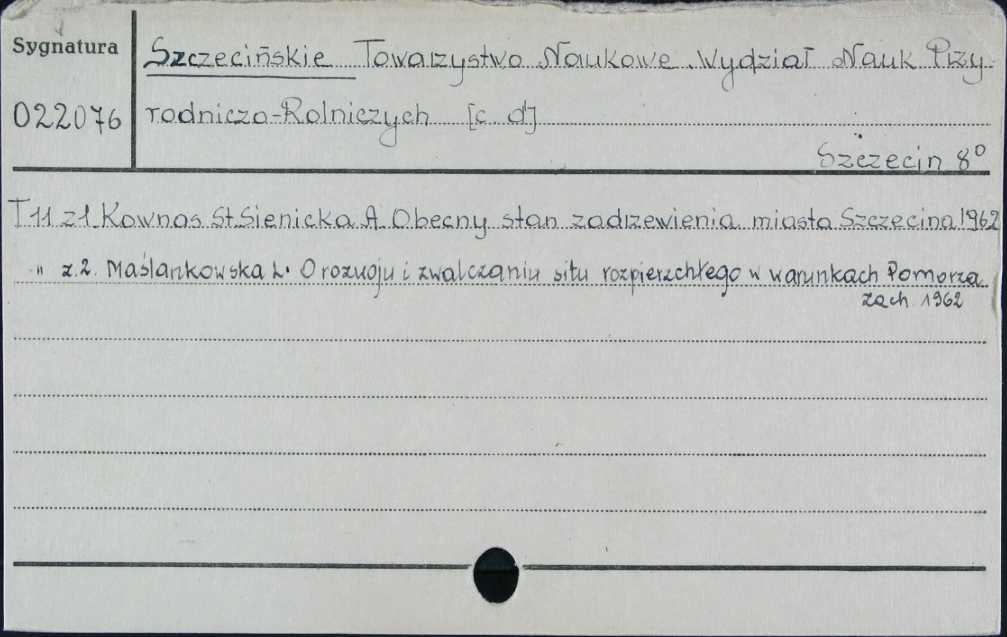 Sygnatura
022076
Szczecińskie Towarzystwo Naukowe. Wydział Nauk Przy-
rodniczo-Rolniczych [c d]
Szczecin 8°
T 11 z 1 Kownas St. Sienicka A. Obecny stan zadrzewienia miasta Szczecina 1962
" z. 2. Maślankowska L. O rozwoju i zwalczaniu situ rozpierzchłego w warunkach Pomorza
zach 1962